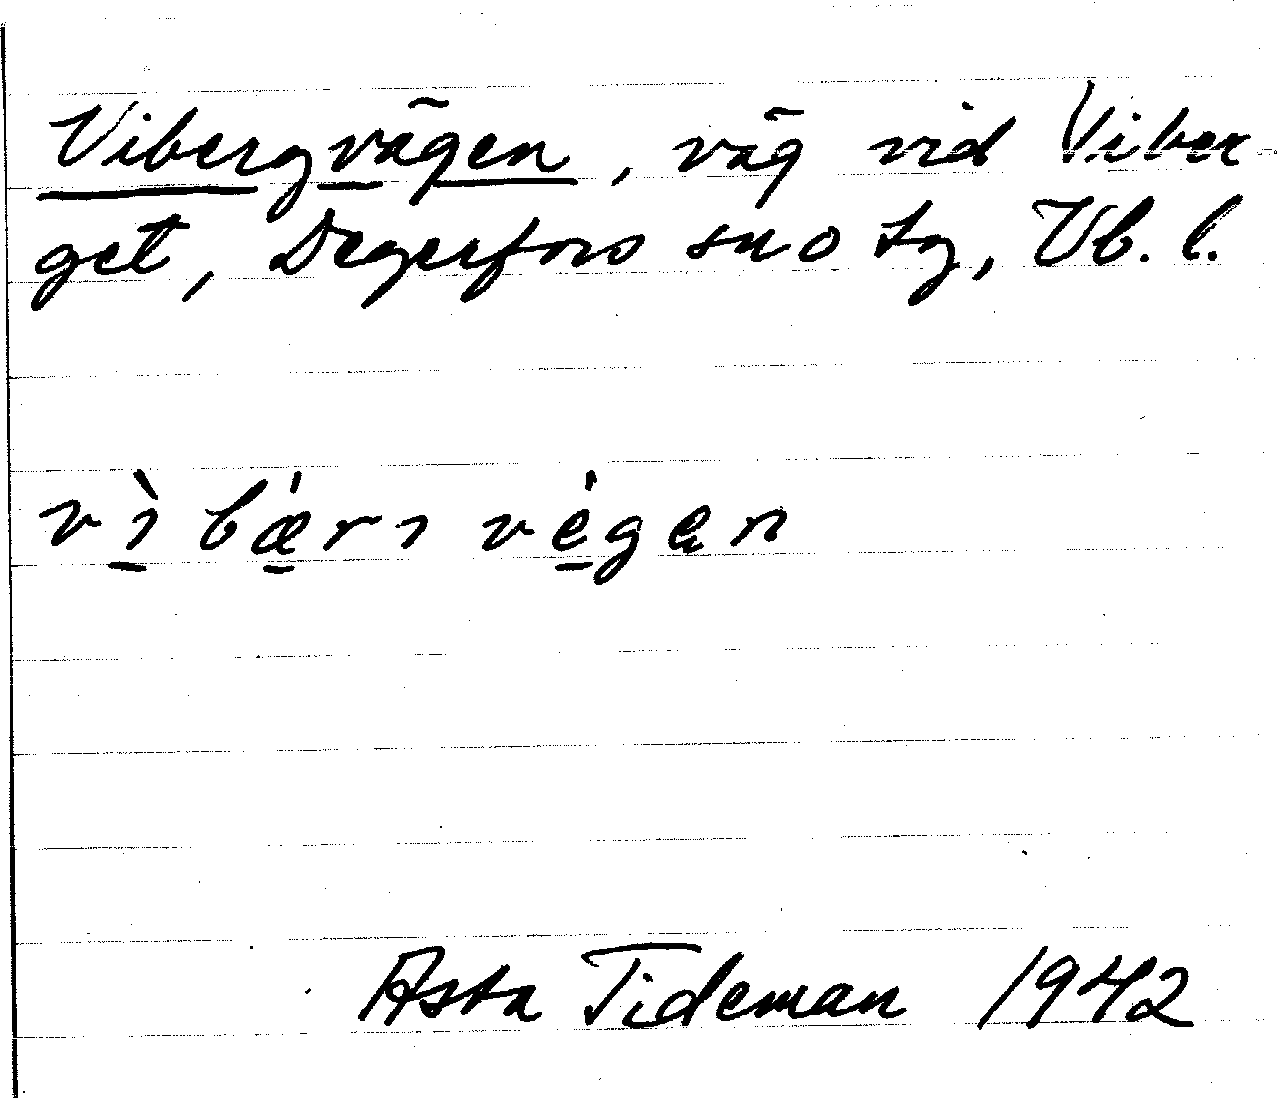 Vibergvägen, väg vid Viber
get, Degerfors sn o tg, Vb. l.
vìbǽrɩvégęn
Asta Tideman 1942